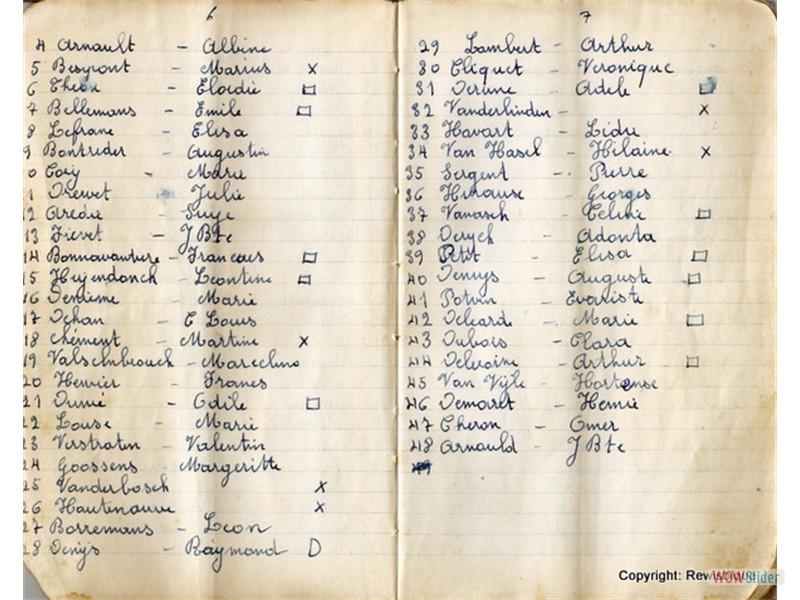 6
4 Arnault - Albine
5 Besront - Marius x
6 Theon - Elordie □
7 Bellemans - Emile □
8 Lefrane - Elisa
9 Bontrider - Augustin
0 Coey - Marie
1 Drewet - Julie
12 Aredie
13 Fievet - J Bte
14 Bonnavanture - Francois □
15 Heyendonck - Leontine □
16 Marie
17 Dehan - C Louis
18 Clément - Martine x
19 - Marcelino
20 Hervier - Frances
21 Dumié - Odile □
22 Louse - Marie
23 Verstraten - Valentin
24 Goossens Margeritte
25 Vanderbosch x
26 Hautenauve x
27 Borremans - Leon
28 Denijs - Raymond D
7
29 Lambert - Arthur
30 Cliquet - Veronique
31 - Adele □
32 Vanderlinden - x
33 Havart - Lidie
34 Van Hasel - Hilaine x
35 Sergent - Pierre
36 - Georges
37 Vanasch - Celine □
38 Deryck - Adonta
39 Petit - Elisa □
40 Denuys - Auguste □
41 Potvin - Evariste
42 Deleard - Marie □
43 Dubois - Clara
44 - Arthur □
45 Van Vijle - Hortense
46 Demoret - Henrie
47 Cheron - Omer
48 Arnauld - J Bte
49
Copyright:
WOWSlider